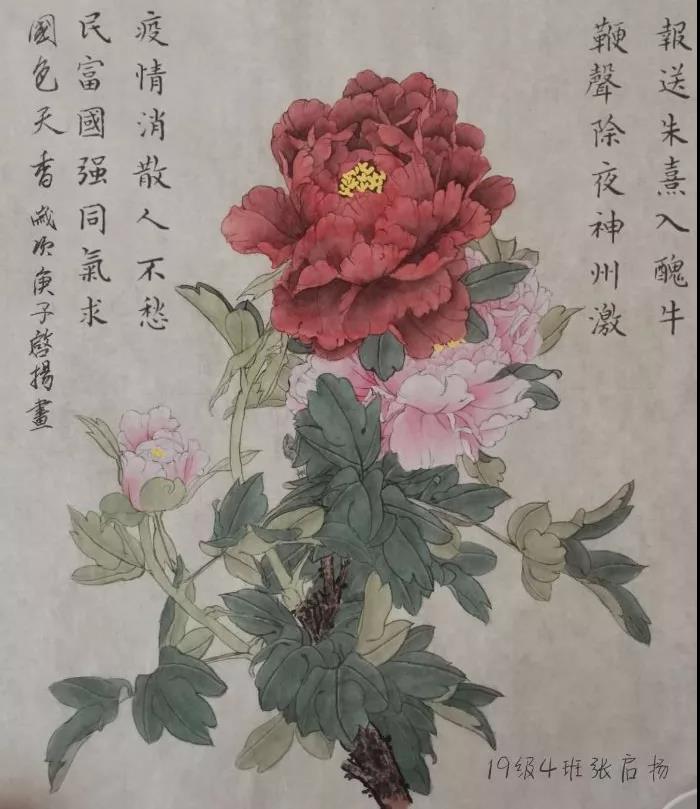 報送朱熹入醜牛
鞭聲除夜神州激
疫情消散人不愁
民富國强同氣求
國色天香 歲次庚子啓揚畫
19级4班张启扬